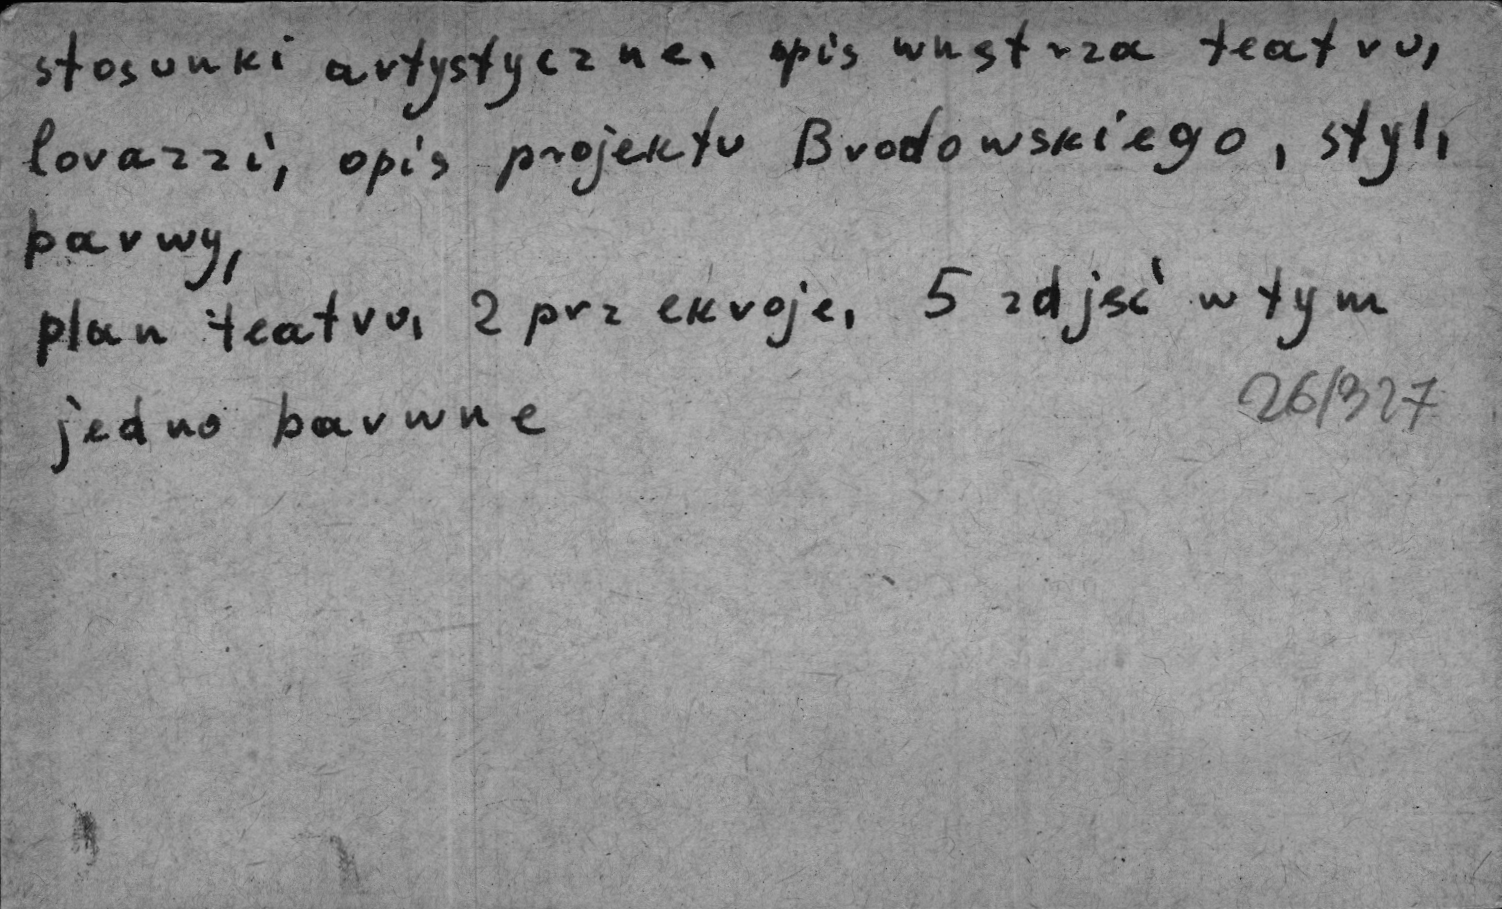 stosunki artystyczne, opis wnętrza teatru,
Lovazzi, opis projektu Brodowskiego, styl,
barwy,
plan teatru, 2 przekroje, 5 zdjęć w tym
jedno barwne
26/327